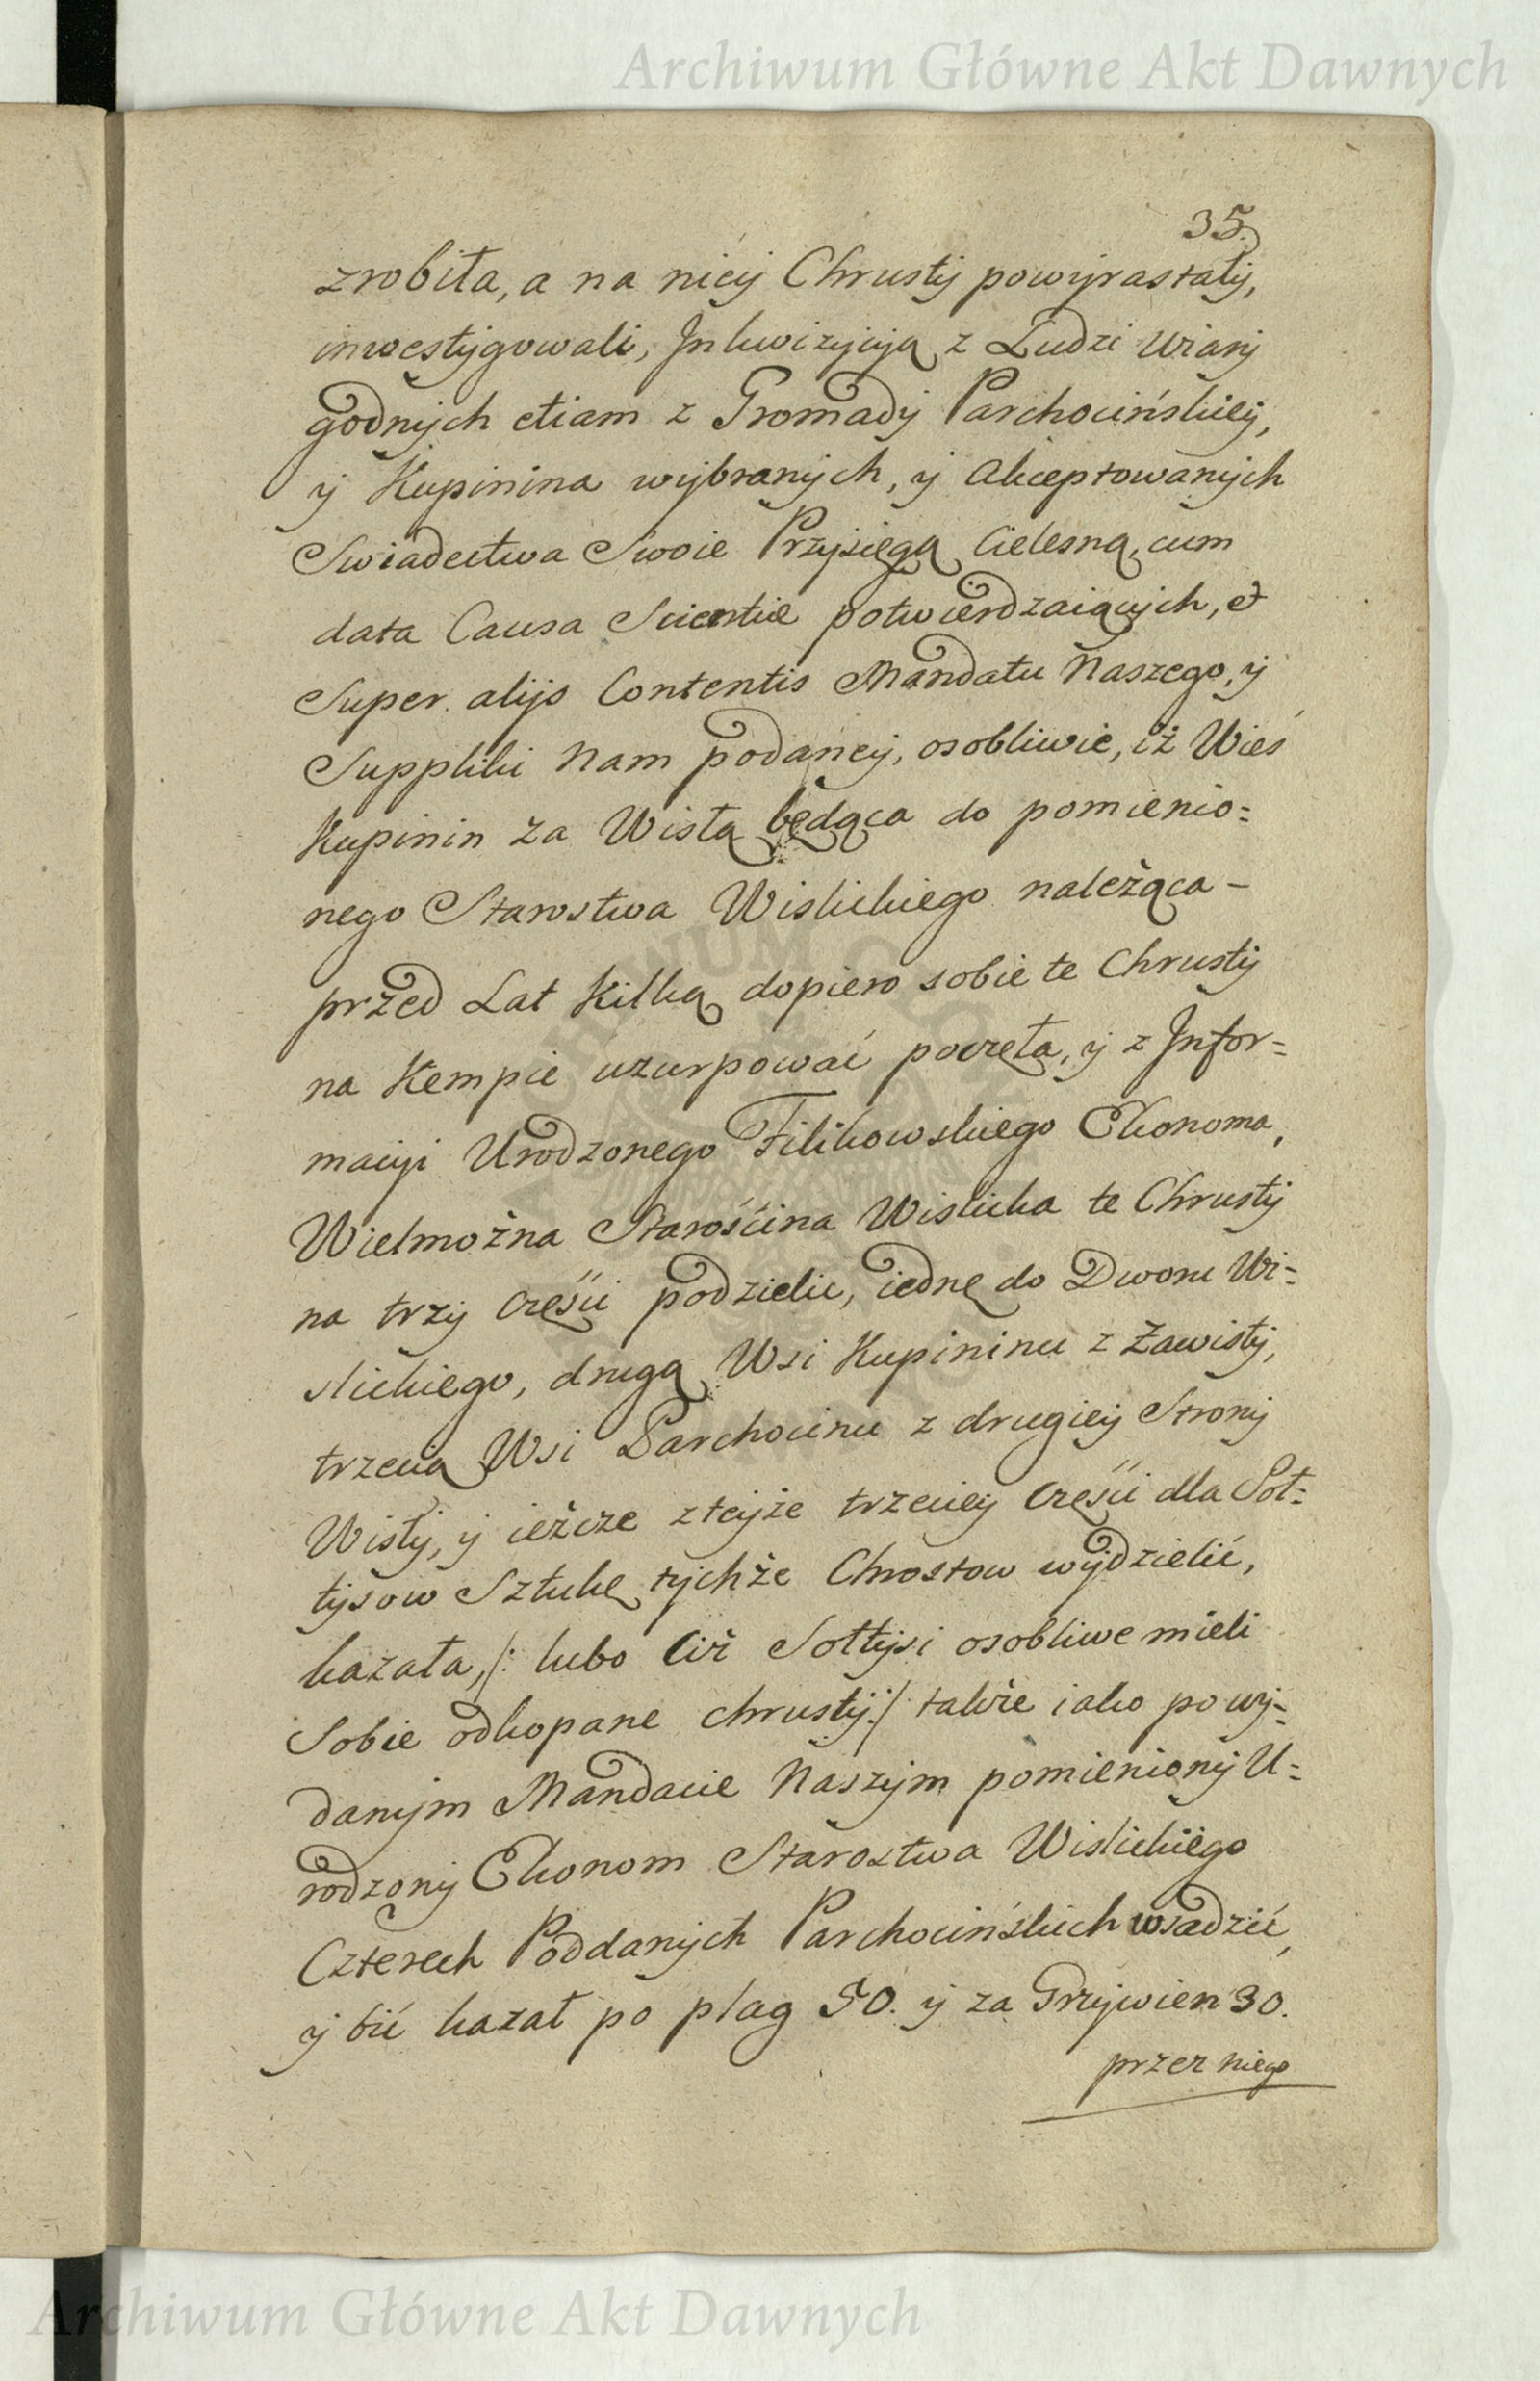 Archiwum Główne Akt Dawnych
35.
zrobiła, a na nieÿ Chrustÿ powÿrastałÿ,
inwestÿgowali, Inkwizÿcÿą z Ludzi Wiarÿ
godnÿch etiam z Gromadÿ Parchocińskieÿ,
ÿ Kupinina wÿbranÿch, ÿ Akceptowanÿch
Swiadectwa Swoie Przÿsięgą Cielesną, cum
data Causa Scientiæ potwierdzaiącÿch, et
Super alijs Contentis Mandatu Naszego, ÿ
Suppliki Nam podaneÿ, osobliwie, iż Wieś
Kupinin za Wisłą będąca do pomienio=
nego Starostwa Wislickiego należąca –
przed Lat Kilką dopiero sobie te Chrustÿ
na Kempie uzurpować poczęła, ÿ z Infor=
macÿi Urodzonego Filikowskiego Ekonoma,
Wielmożna Starościna Wislicka te Chrustÿ
na trzÿ Części podzielic, iednę do Dworu Wi=
slickiego, drugą Wsi Kupininu z Zawisłÿ,
trzecią Wsi Parchocinu z drugieÿ Stronÿ
Wisłÿ, ÿ ieżcze z teÿże trzecieÿ Części dla Soł=
tÿsow Sztukę tÿchże Chrostow wÿdzielić,
kazała, /: lubo Ciż Sołtÿsi osobliwe mieli
Sobie odkopane chrustÿ :/ także iako po wÿ=
danÿm Mandacie Naszÿm pomienionÿ U=
rodzonÿ Ekonom Starostwa Wislickiego
Czterech Poddanÿch Parchocińskich wsadzić,
ÿ bić kazał po plag 50. ÿ za Grzÿwien 30.
przez niego
Archiwum Główne Akt Dawnych